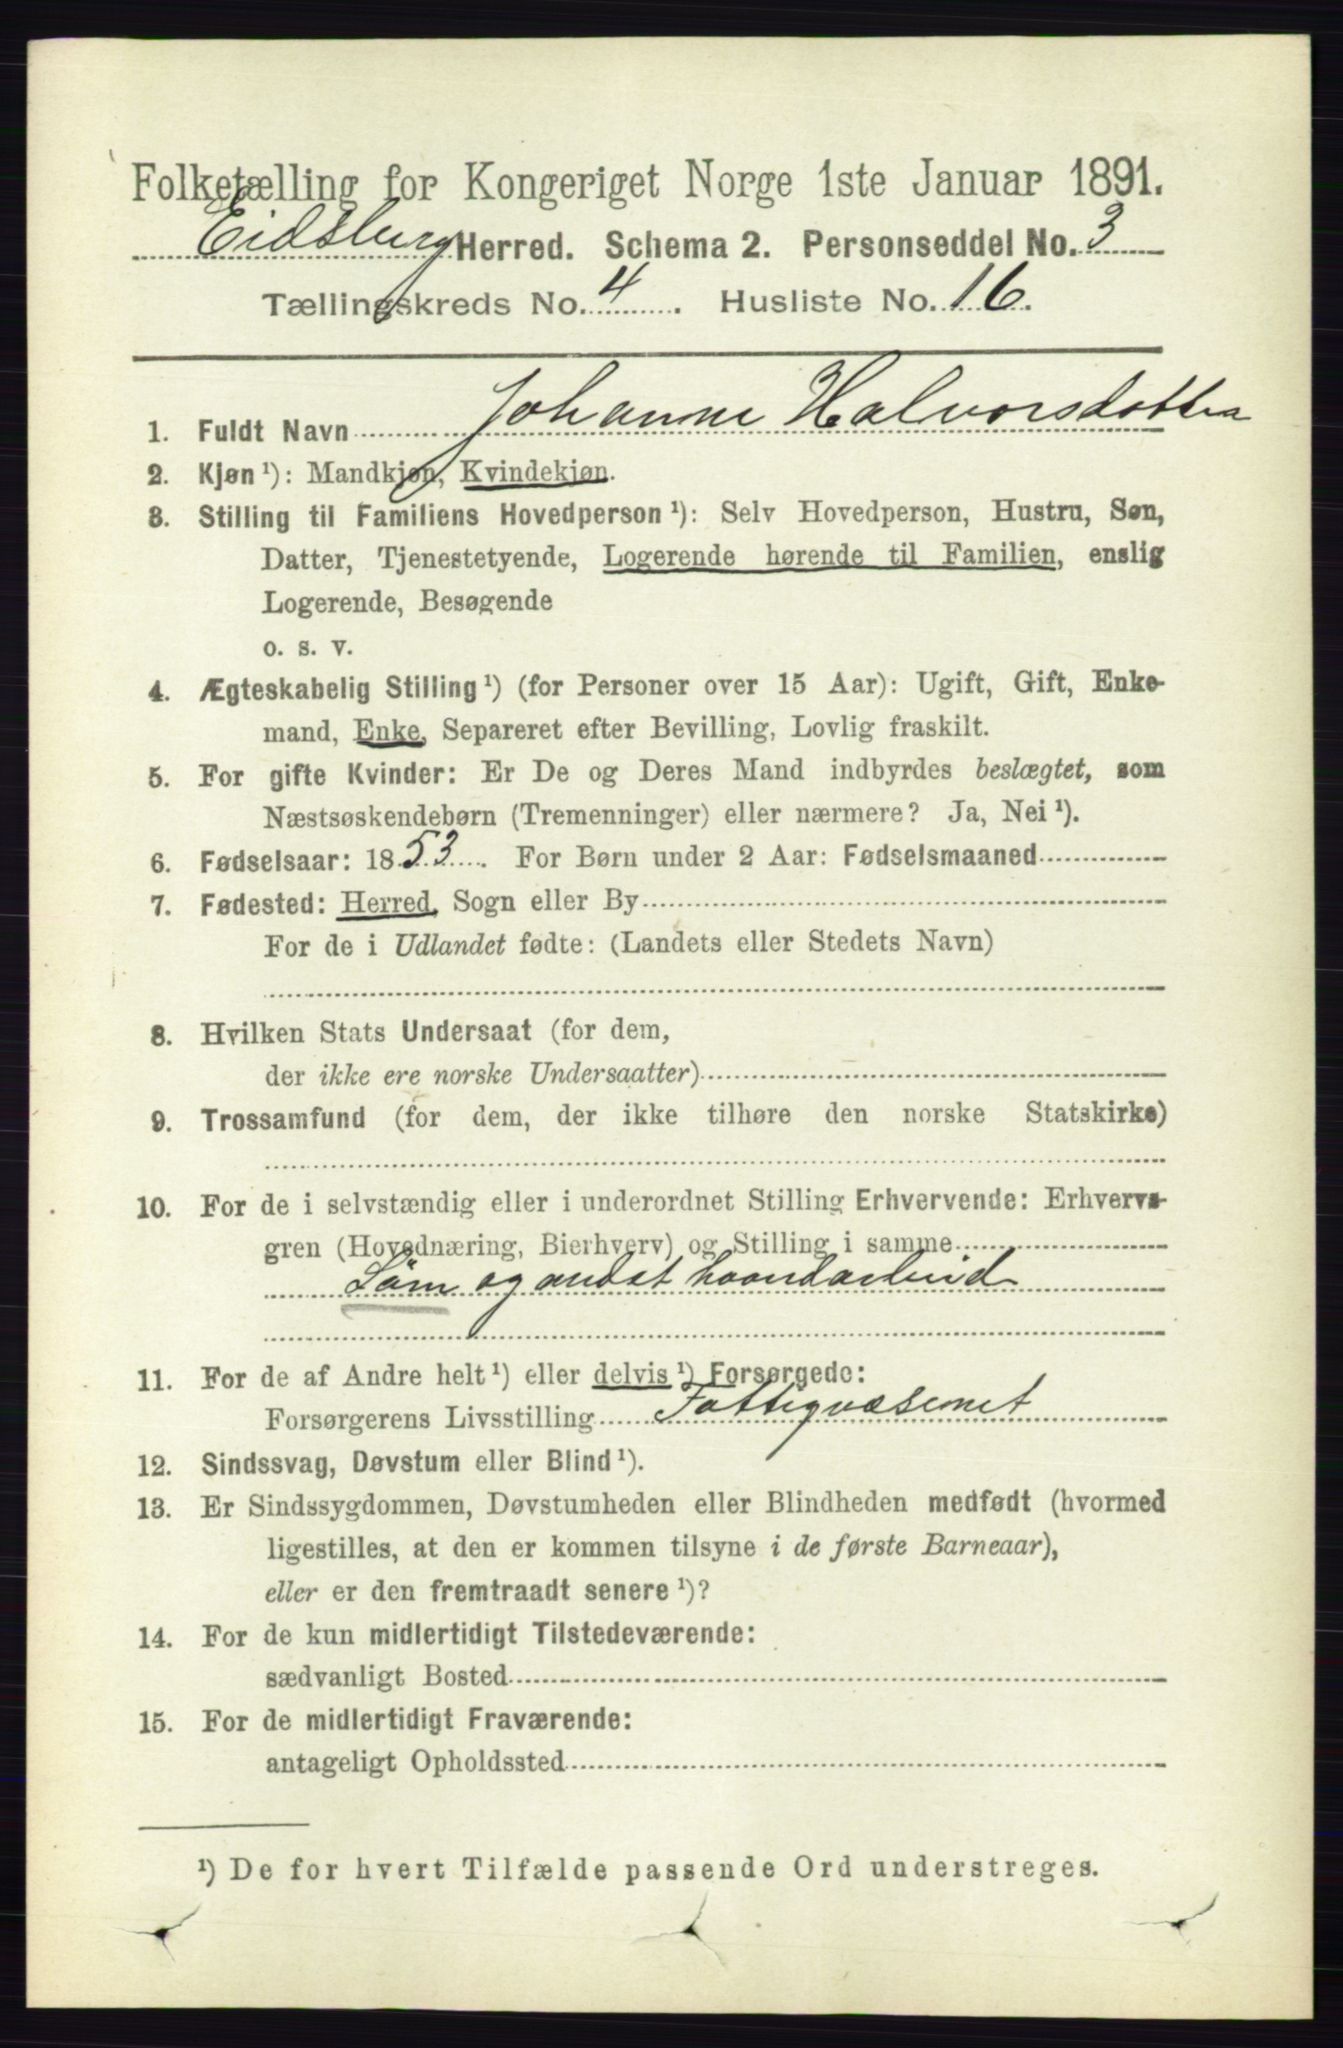 Folketælling for Kongeriget Norge 1ste Januar 1891.
Eidsberg Herred. Schema 2. Personseddel No. 3
Tællingskreds No. 4. Husliste No. 16.
1. Fuldt Navn Johanne Halvorsdatter
2. Kjøn ¹): Mandkjøn, Kvindekjøn.
3. Stilling til Familiens Hovedperson ¹): Selv Hovedperson, Hustru, Søn,
Datter, Tjenestetyende, Logerende hørende til Familien, enslig
Logerende, Besøgende
o. s. v.
4. Ægteskabelig Stilling ¹) (for Personer over 15 Aar): Ugift, Gift, Enke-
mand, Enke, Separeret efter Bevilling, Lovlig fraskilt.
5. For gifte Kvinder: Er De og Deres Mand indbyrdes beslægtet, som
Næstsøskendebørn (Tremenninger) eller nærmere? Ja, Nei ¹).
6. Fødselsaar: 1853. For Børn under 2 Aar: Fødselsmaaned
7. Fødested: Herred, Sogn eller By
For de i Udlandet fødte: (Landets eller Stedets Navn)
8. Hvilken Stats Undersaat (for dem,
der ikke ere norske Undersaatter)
9. Trossamfund (for dem, der ikke tilhøre den norske Statskirke)
10. For de i selvstændig eller i underordnet Stilling Erhvervende: Erhvervs-
gren (Hovednæring, Bierhverv) og Stilling i samme
Söm og andet haandarbeid
11. For de af Andre helt ¹) eller delvis ¹) Forsørgede:
Forsørgerens Livsstilling Fattigvæsenet
12. Sindssvag, Døvstum eller Blind ¹).
13. Er Sindssygdommen, Døvstumheden eller Blindheden medfødt (hvormed
ligestilles, at den er kommen tilsyne i de første Barneaar),
eller er den fremtraadt senere ¹)?
14. For de kun midlertidigt Tilstedeværende:
sædvanligt Bosted
15. For de midlertidigt Fraværende:
antageligt Opholdssted
¹) De for hvert Tilfælde passende Ord understreges.